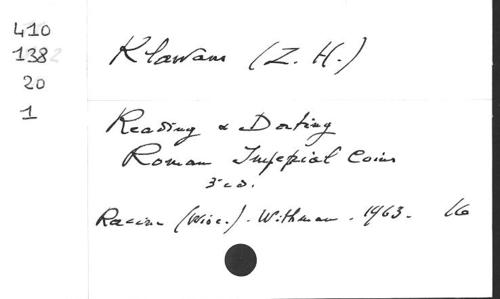 410
1382
20
1
Klawans (Z. H.)
Reading & Dating
Roman Imperial Coins
3 ed.
Racine (Wisc.). Withman. 1963. 16